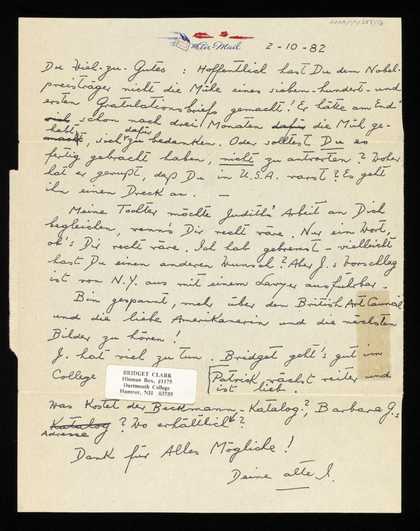 Air Mail
2-10-82
Du Viel-zu-Gutes: Hoffentlich hast Du dem Nobel-
preisträger nicht die Mühe eines sieben-hundert-und
ersten Gratulationsbriefs gemacht! Er hätte am End'
schon nach drei Monaten dafür die Müh, ge-
habt, sich dafür zu bedanken. Oder solltest Du es
fertig gebracht haben, nicht zu antworten? Woher
hat er gewusst, daß Du in U.S.A. warst? Es geht
ihn einen Dreck an. —
Meine Tochter möchte Judith's Arbeit an Dich
begleichen, wenn's Dir recht wäre. Nur ein Wort,
ob's Dir recht wäre. Ich hab gebremst - vielleicht
hast Du einen anderen Wunsch? Aber J.s Vorschlag
ist von N.Y. aus mit einem Lawyer ausführbar.
Bin gespannt, mehr über den British Art Council
und die liebe Amerikanerin und die nächsten
Bilder zu hören!
J. hat viel zu tun. Bridget geht's gut im
College
BRIDGET CLARK
Hinman Box, #1175
Dartmouth College
Hanover, NH 03755
Patrick wächst weiter und
ist lieb.
Was kostet der Beckmann-Katalog?, Barbara G.s
Katalog? Wo erhältlich?
Adresse
Dank für Alles Mögliche!
Deine alte I.